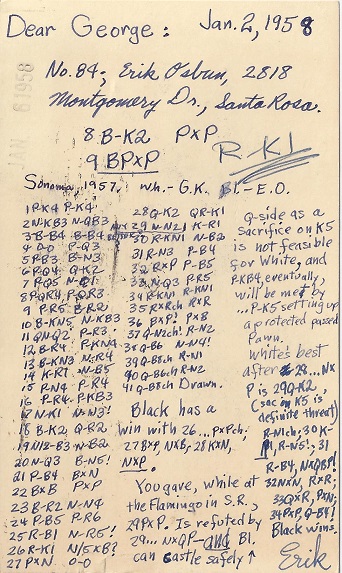 Dear George: Jan. 2, 1958
JAN 6 1958
No. 84; Erik Osbun, 2818
Montgomery Dr., Santa Rosa.
8 B-K2 PXP
9 BPXP R-K1
Sonoma, 1957. Wh.- G.K. Bl-E.O.
1 P-K4 P-K4
2 N-KB3 N-QB3
3 B-B4 B-B4
P-Q3
5 P-B3 B-N3
Q-K2
12 B-R4 P-KN4
13 B-KN3 N-R4
14 K-R1 N-B5
15 P-N4 P-R4
16 P-R4 P-KB3
17 N-K1 N-N3!
18 B-K2 Q-R2
N-B2
20 N-Q3 B-N5!
21 P-B4 BXN
22 BXB PXP
23 B-R2 N-N4
24 P-B5 P-R6
25 R-B1 N-R5!
26 R-K1 N/5XB?
27 PXN O-O
28 Q-K2 QR-K1
29 N-N2 K-R1
30 R-KN1 N-B2
31 R-N3 P-B4
32 RXP P-B5
33 N-Q3 P-R5
34 R-KN1 R-KN1
35 RXRch RXR
36 BXP! PXB
37 Q-N2ch! R-N2
38 Q-B6 N-N4!
39 Q-B8ch R-N1
40 Q-B6ch R-N2
41 Q-B8ch Drawn.
Black has a
win with 26...PXPch;
27 BXP, NXB; 28 KXN,
NXP.
You gave, while at
the Flamingo in S.R.,
29 PXP. Is refuted by
29... NXQP—and Bl.
can castle safely ↑
Q-side as a
Sacrifice on K5
is not feasible
for White, and
P-KB4, eventually,
will be met by
...P-K5 setting up
a protected passed
Pawn.
White's best
after ... NX
P is 29 Q-K2,
(sac on K5 is
definite threat)
R-N1ch; 30 K-
R-N5!; 31
R-B4, NXQBP!
32 NXN, RXR;
33 QXR, PXN;
34 PXP, Q-B4!
Black wins.
Erik